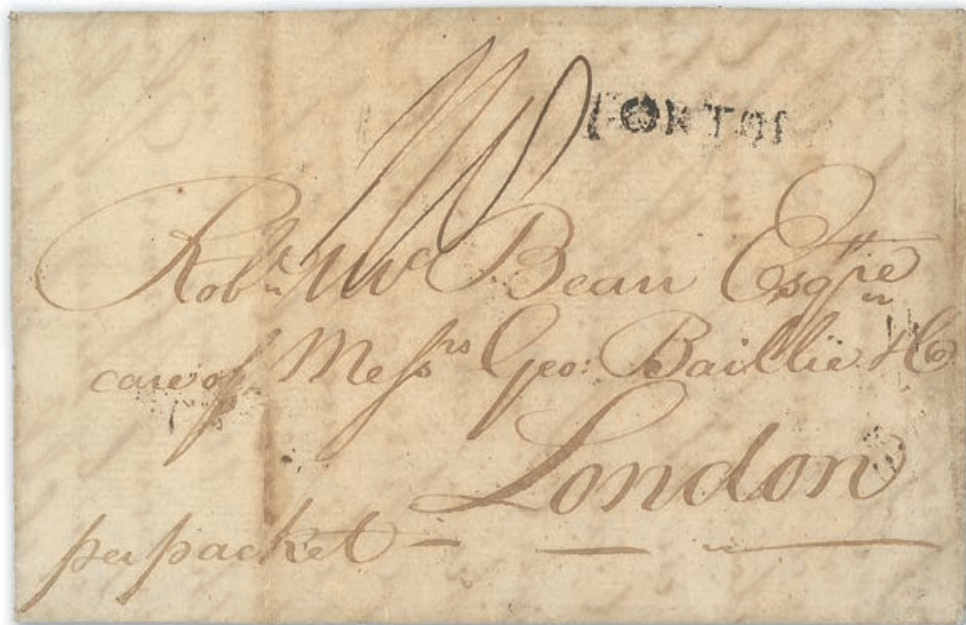 Robt McBean Esqre
care of Messrs Geo: Baillie & Co
London
per packet